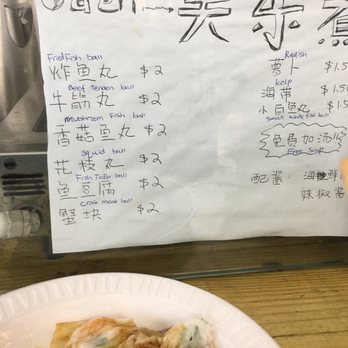 关东煮
Fried Fish ball
炸鱼丸 $2
Beef Tenden ball
牛筋丸 $2
Mushroom Fish ball
香菇鱼丸 $2
Squid ball
花枝丸 $2
Fish Tofu ball
鱼豆腐 $2
Crab meat ball
蟹块 $2
Radish
萝卜 $1.5
kelp
海带 $1.50
小白鱼丸 $1.5
Small white fish ball
免费加汤
Free Soup
配酱: 海鲜
辣椒酱